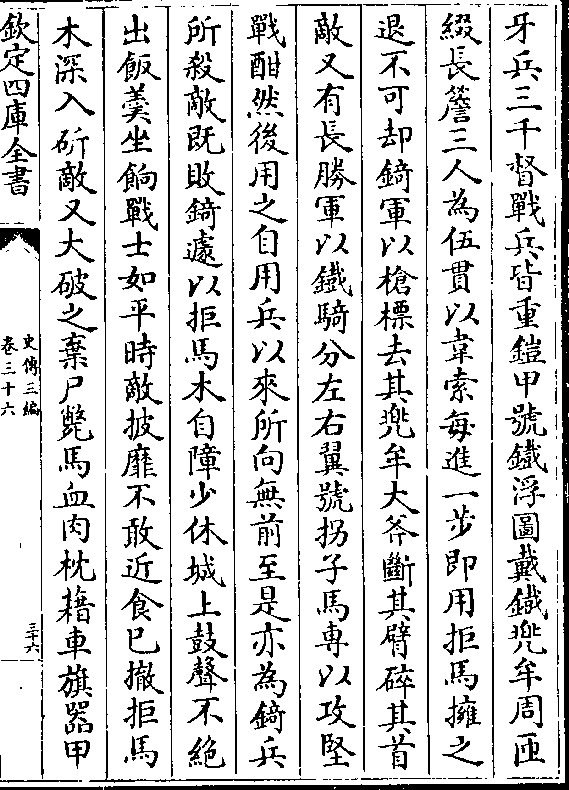 牙兵三千督戰兵皆重鎧甲號鐵浮圖戴鐡兠牟周匝
綴長簷三人為伍貫以韋索每進一步即用拒馬擁之
退不可却錡軍以槍標去其兠牟大斧斷其臂碎其首
敵又有長勝軍以鐵騎分左右翼號拐子馬専以攻堅
戰酣然後用之自用兵以來所向無前至是亦為錡兵
所殺敵既敗錡遽以拒馬木自障少休城上鼓聲不絶
出飯羮坐餉戰士如平時敵披靡不敢近食已撤拒馬
木深入斫敵又大破之棄尸斃馬血肉枕藉車旗器甲
欽定四庫全書
史傳三編
卷三十六
三十六